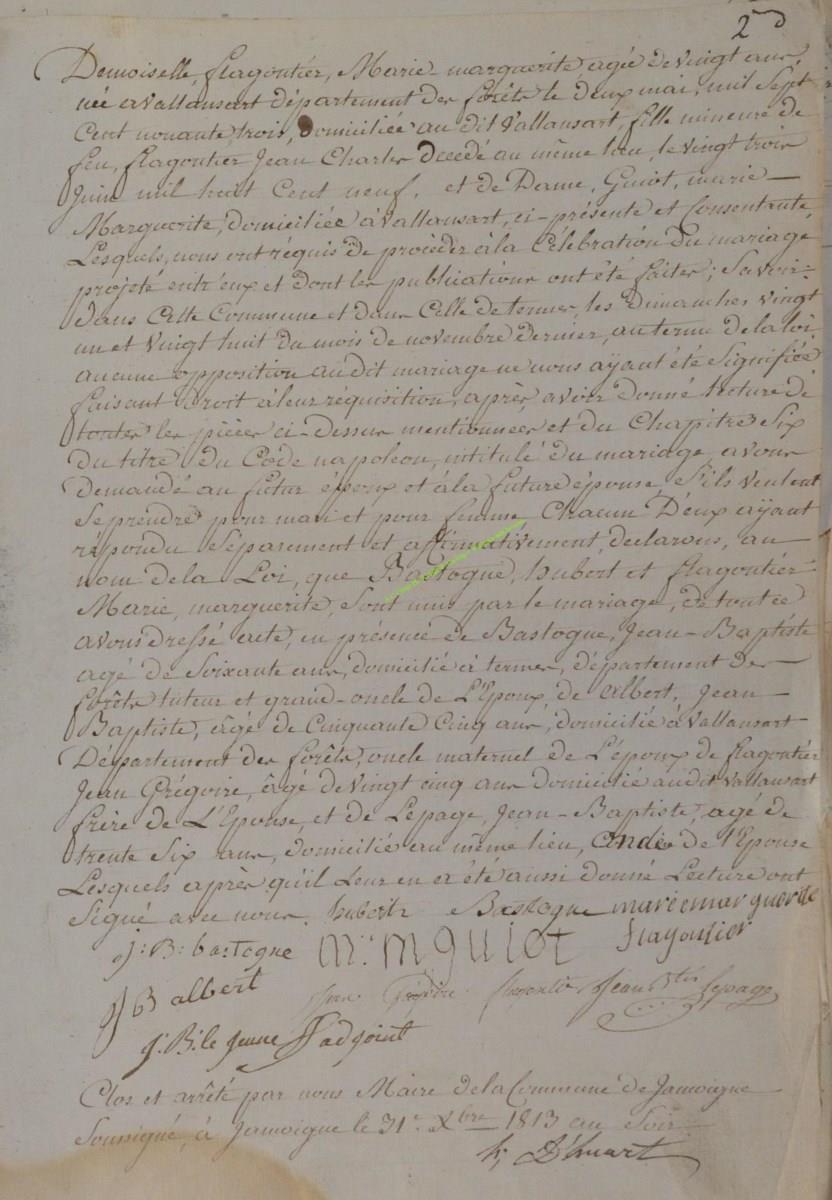 2
Demoiselle, flagoutier, Marie-marguerite agée de vingt ans,
née a vallansart département des forêts le deux mai, mil Sept
Cent nonante trois, domiciliée au dit Vallansart, fille mineure de
feu, flagoutier Jean Charles Décedé au même lieu, le vingt trois
Juin mil huit Cent neuf, et de Dame, Guiot, marie
Marguerite, domiciliée à vallansart, ci-présente et Consentante,
Lesquels, nous ont réquis de procéder à la Célébration du mariage
projeté entr'eux et dont les publications ont été faites; Savoir:
Dans Cette Commune et dans Celle de termes, les Dimanches vingt
un et vingt huit du mois de novembre dernier, au terme de la loi
aucune opposition au dit mariage ne nous ayant été Signifiée
faisant droit à leur réquisition, après avoir donné lecture de
toutes les pièces ci-dessus mentionnées et du Chapitre Six
du titre du Code napoleon, intitulé du mariage avons
demandé au futur époux et à la future épouse S'ils veulent
Se prendre pour mari et pour femme Chacun D'eux ayant
répondu Séparement et affirmativement, declarons, au
nom de la Loi, que Bastogne, hubert et flagoutier
Marie, marguerite, Sont unis par le mariage, de tout ce
avons dressé acte, en présence de Bastogne, Jean-Baptiste
agé de Soixante ans, domicilié à termes, département des
forêts tuteur et grand-oncle de L'Epoux, de albert, Jean
Baptiste, âgé de Cinquante Cinq ans, domicilié à Vallansart
Département des forêts, oncle maternel de L'époux de flagoutier
Jean Grégoire, âgé de vingt cinq ans domicilié au dit vallansart
frère de L'Epouse, et de Lepage, Jean-Baptiste, agé de
trente Six ans, domicilié au même lieu, de l'Epouse
Lesquels après qu'il Leur en a été aussi donné Lecture ont
Signé avec nous. hubert Bastogne marie marguerite
j: B: bastogne m: m guiot flagoutier
J B albert Jean Grégoire flagoutier Jean Bte Lepage
J: B: le jeune adjoint
Clos et arrêté par nous Maire de la Commune de Jamoigne
Soussigné, à Jamoigne le 31e Xbre 1813 au Soir
D'huart